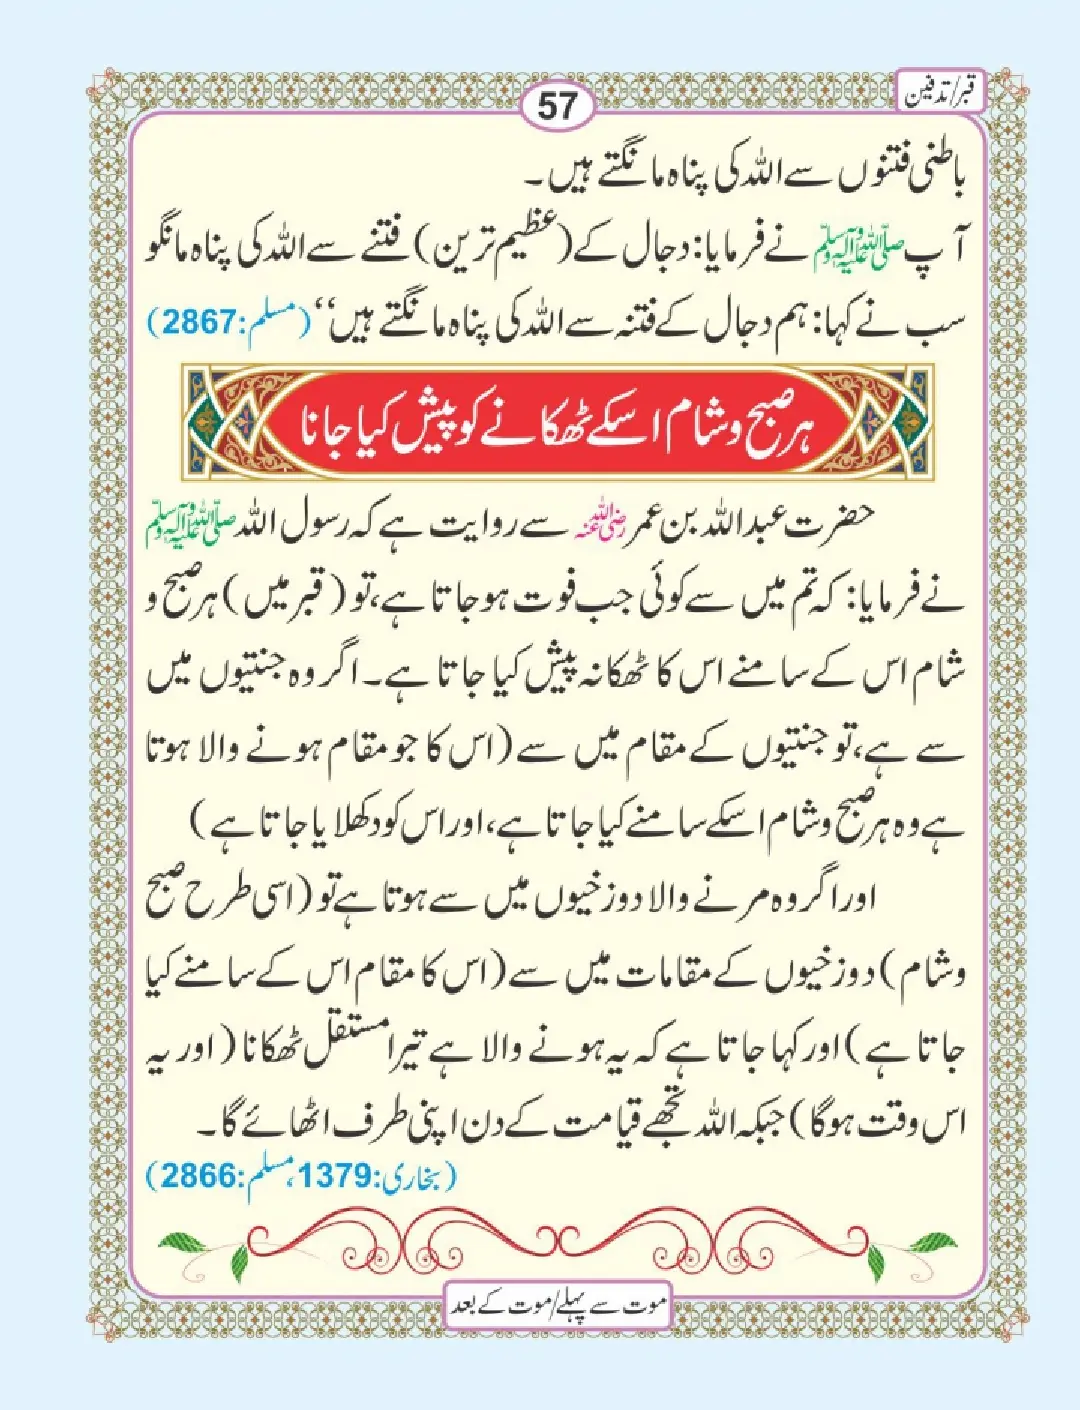 قبر/تدفین
57
باطنی فتنوں سے اللہ کی پناہ مانگتے ہیں۔
آپ صلی اللہ علیہ وآلہ وسلم نے فرمایا: دجال کے (عظیم ترین) فتنے سے اللہ کی پناہ مانگو
سب نے کہا: ہم دجال کے فتنہ سے اللہ کی پناہ مانگتے ہیں‘‘ (مسلم:2867)
ہر صبح و شام اسکے ٹھکانے کو پیش کیا جانا
حضرت عبداللہ بن عمر رضی اللہ عنہ سے روایت ہے کہ رسول اللہ صلی اللہ علیہ وآلہ وسلم
نے فرمایا: کہ تم میں سے کوئی جب فوت ہو جاتا ہے، تو (قبر میں) ہر صبح و
شام اس کے سامنے اس کا ٹھکانہ پیش کیا جاتا ہے۔ اگر وہ جنتیوں میں
سے ہے، تو جنتیوں کے مقام میں سے (اس کا جو مقام ہونے والا ہوتا
ہے وہ ہر صبح و شام اسکے سامنے کیا جاتا ہے، اور اس کو دکھلایا جاتا ہے)
اور اگر وہ مرنے والا دوزخیوں میں سے ہوتا ہے تو (اسی طرح صبح
و شام) دوزخیوں کے مقامات میں سے (اس کا مقام اس کے سامنے کیا
جاتا ہے) اور کہا جاتا ہے کہ یہ ہونے والا ہے تیرا مستقل ٹھکانا (اور یہ
اس وقت ہوگا) جبکہ اللہ تجھے قیامت کے دن اپنی طرف اٹھائے گا۔
(بخاری:1379، مسلم:2866)
موت سے پہلے/موت کے بعد